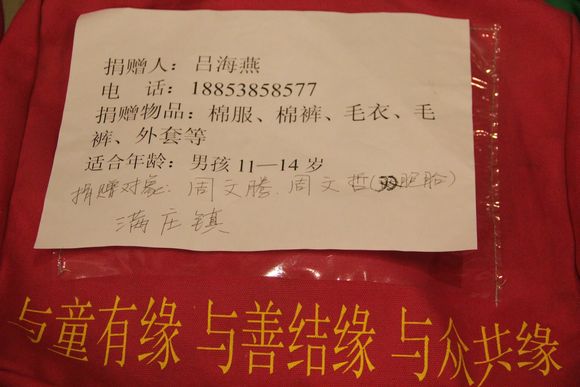 捐赠人：吕海燕
电　话：18853858577
捐赠物品：棉服、棉裤、毛衣、毛
裤、外套等
适合年龄：男孩 11—14 岁
捐赠对象：周文腾、周文哲(双胞胎)
满庄镇
与童有缘 与善结缘 与众共缘